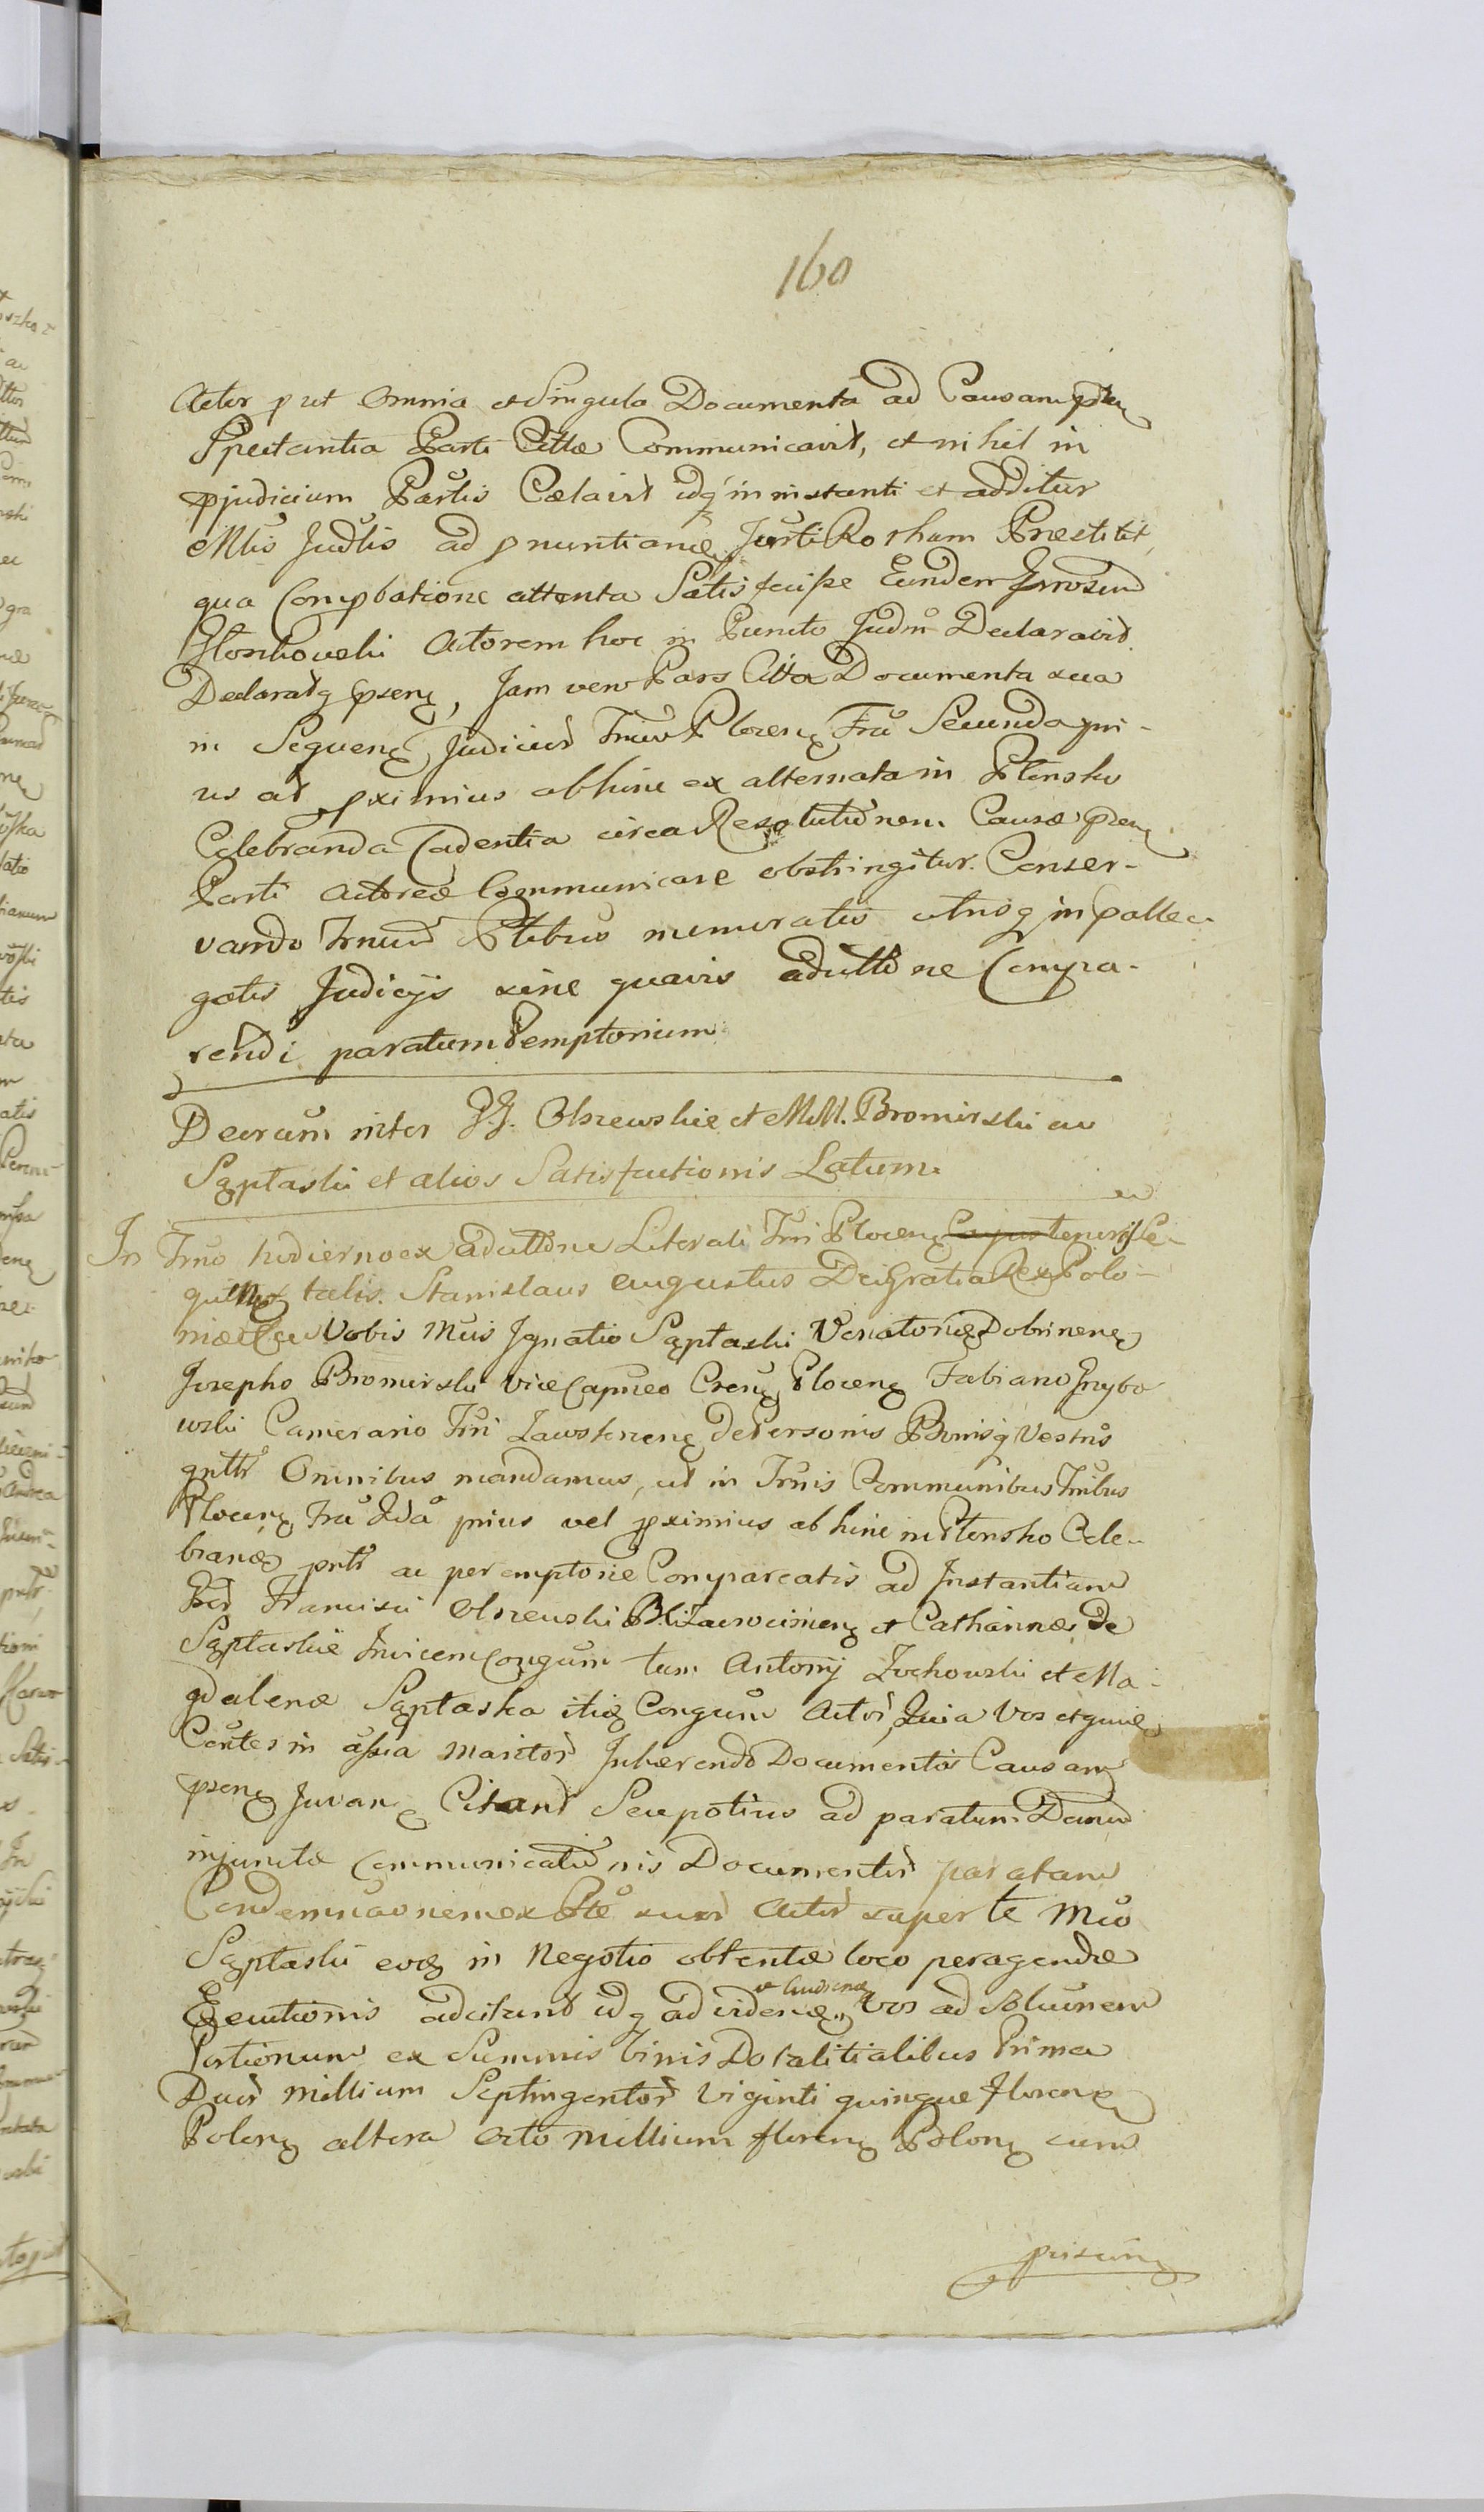 160
Actor put Omnia et Singula Documenta ad Causam
Spectantia Parti Cittae Communicavit, et nihil in
pjudicium Partis Celavit idq in instanti et additur
Mtis Judlis ad pnuntiane Jurti Rotham Praestitit,
qua Compbatione attenta Satisfecisse Eundem
Actorem hoc in Puncto Judm Declaravit.
Declaratq psens, Jam vero Pars Citta Documenta sua
in Sequens Judicior Trrior Plocens Fra Secunda pri-
us at pximius abhinc ex alternata in Plonsko
Celebranda Cadentia circa Resolutionem Causae psens
Parti Actoreae Communicare obstringitur. Conser-
vando Trnum Ptibus memoratis utrisq in praealle-
gatis Judicijs sine quavis adcittone Compa-
rendi paratum Pemptorium
Decrum inter JJ. Olszewskie et MM. Bromirski ac
Sęptaski et alios Satisfactionis Latum.
In Trno hodierno ex adcittone Literali Trri Plocens tenoris Se-
quitur talis. Stanislaus Augustus Dei Gratia Rex Polo-
niae Vobis Mcis Ignatio Sęptaski Venatori Dobrinens
Josepho Bromirski ViceCapneo Crens Plocens Fabiano
wski Camerario Trri Zawskrnens de Personis Bonisq Vestris
gnttr Omnibus mandamus, ut in Trnis Communibus Trribus
Plocens Fra 2da prius vel pximius abhinc in Plonsko Cele-
brans pntr ac peremptorie Compareatis ad Instantiam
Francisci Olszewski et Catharinae de
Sęptaskie Invicem Congum tum Antonij Zochowski et Ma-
gdalenae Sęptaska itid Congum Actor, Quia Vos
Contes in assia Maritor Inhaerendo Documentis Causam
psens Juvan Citant Seu potius ad paratam
injunctae Communicationis Documentor paratam
Condemnaonem ex Pte suor Actor super te Mco
Sęptaski eoq in Negotio obtentae loco peragendae
Exeutionis adcitant idq ad videns et Audiens Vos ad Solunem
Portionum ex Summis binis Dotalitialibus Prima
Duor Millium Septingentor Viginti quinque floren
Polon altera Octo Millium floren Polon cum